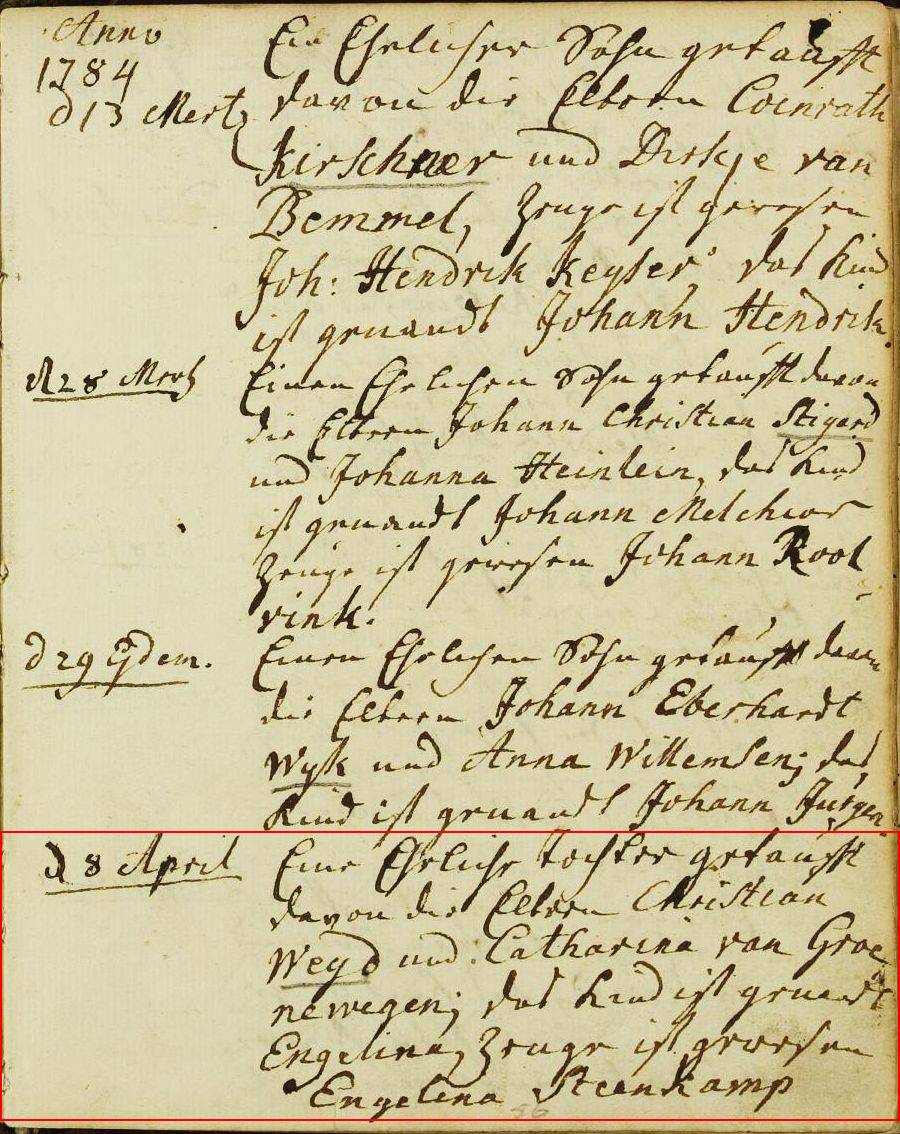 Anno
1784
d 13 Mertz
Ein Ehelicher Sohn getaufft
davon die Eltern Coenrath
Kirschner und Dirkje van
Bemmel, Zeuge ist gewesen
Joh: Hendrik Keyser, das Kind
ist genandt Johann Hendrik.
d 28 Mertz
Einen Ehelichen Sohn getaufft davon
die Eltern Johann Christian Stigard
und Johanna Heinlein, das Kind
ist genandt Johann Melchior
Zeuge ist gewesen Johann Rool
vink.
d 29 Ejdem.
Einen Ehelichen Sohn getaufft davon
die Eltern Johann Eberhardt
Wyk und Anna Willemsen; das
Kind ist genandt Johann Jurgen
d 8 April
Eine Eheliche tochter getaufft
davon die Eltern Christian
Weyd und Catharina van Groe
newegen; das Kind ist genandt
Engelina, Zeuge ist gewesen
Engelina Steenkamp
56